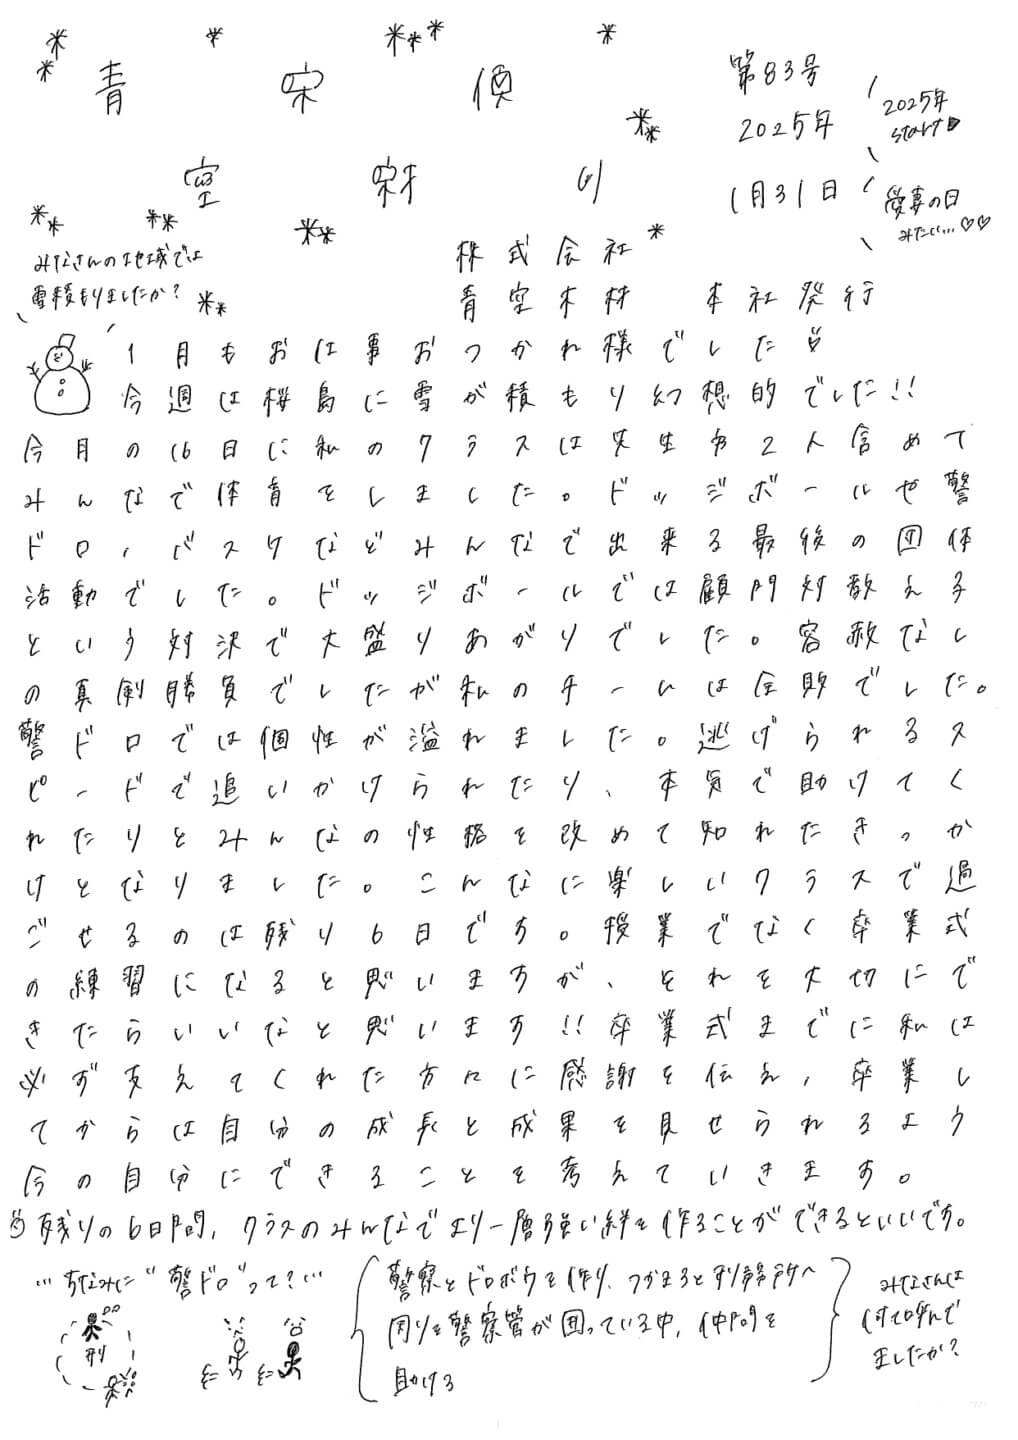 青空家族便り
第83号
2025年
1月31日
2025年
start
愛妻の日
みたい…♡♡
みなさんの地域では
雪積もりましたか？
株式会社
青空木材 本社発行
1月もお仕事おつかれ様でした
今週は桜島に雪が積もり幻想的でした!!
今月の16日に私のクラスは先生方2人含めて
みんなで体育をしました。ドッジボールや警
ドロ、バスケなどみんなで出来る最後の団体
活動でした。ドッジボールでは顧問対教え子
という対決で大盛りあがりでした。容赦なし
の真剣勝負でしたが私のチームは全敗でした。
警ドロでは個性が溢れました。逃げられるス
ピードで追いかけられたり、本気で助けてく
れたりとみんなの性格を改めて知れたきっか
けとなりました。こんなに楽しいクラスで過
ごせるのは残り6日です。授業でなく卒業式
の練習になると思いますが、それを大切にで
きたらいいなと思います!!卒業式までに私は
必ず支えてくれた方々に感謝を伝え、卒業し
てからは自分の成長と成果を見せられるよう
今の自分にできることを考えていきます。
残りの6日間、クラスのみんなでより一層強い絆を作ることができるといいです。
…ちなみに"警ドロ"って？…
警察とドロボウを作り、つかまると刑務所へ
周りを警察官が囲っている中、仲間を
助ける
刑
みなさんは
何て呼んで
ましたか？